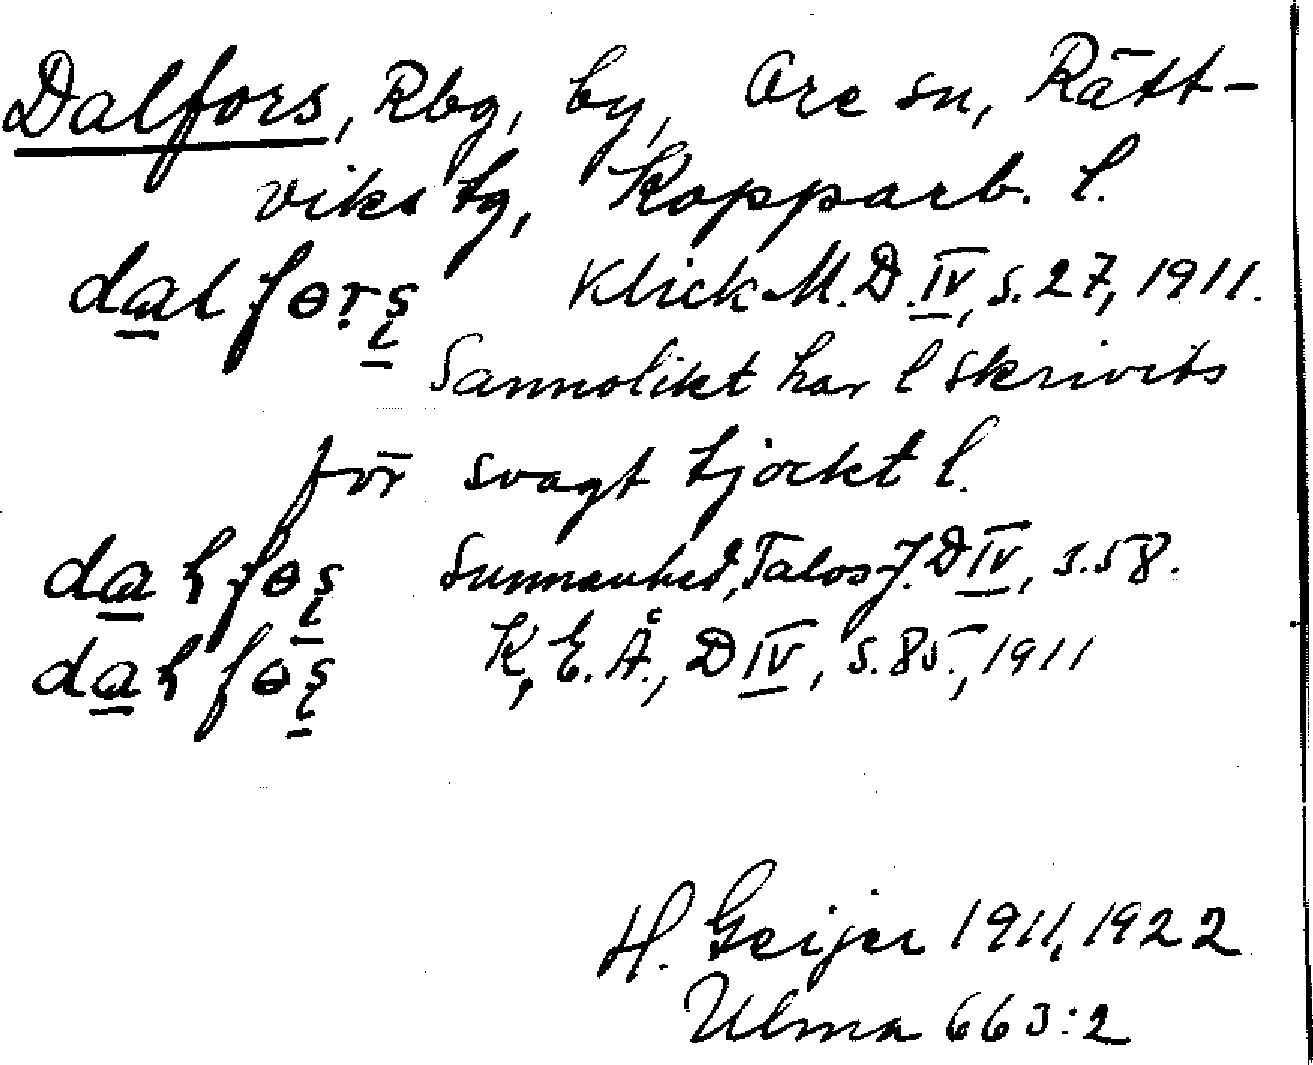 Dalfors, Rbg, by, Ore sn, Rätt-
viks tg, Kopparb. l.
dalfors Klick M. D IV, s. 27, 1911.
Sannolikt har l skrivits
för svagt tjockt l.
D IV, s. 58.
K, E. Å., D IV, s. 85, 1911
H. Geijer 1911, 1922
Ulma 663:2